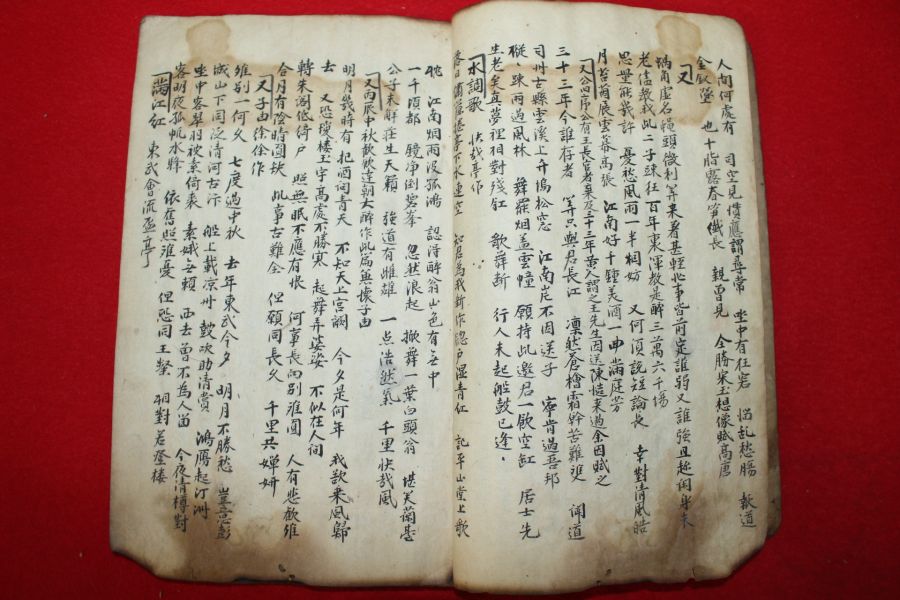 人間何處有 司空見慣應謂尋常 坐中有狂客 惱乱愁腸 報道
金釵墜也 十指露春笋纖長 親曾見 全勝宋玉想像賦高唐
又
蝸角虛名蝇頭微利 筭來著甚 事皆前定誰弱又誰強且趂閑身未
老儘教我些子踈狂 百年裏渾教是醉三萬六千場
思量能幾許 憂愁風雨一半相妨 又何須說短論長 幸對清風皓
月苔茵展雲幕高張 江南好千鍾美酒一曲滿庭芳
又 公四序公有王長官者弃 三十三年黄人謂之王先生因送陳慥來過余因賦之
三十三年今誰存者 筭只與君長江 凜然蒼檜霜幹苦難雙 聞道
司州古縣雲溪上竹塢松窓 江南岸不因送子 寧肯過吾邦
摐 踈雨過風林 舞罷烟盖雲幢 願持此邀君一飲空缸 居士先
生老矣真夢裡相對殘釭 歌舞断 行人未起船鼓已逢
水調歌 快哉亭作
落日繡簾捲亭下水連空 知君為我新作窓戶湿青紅 記平山堂上歌
枕 江南烟雨沒孤鴻 認得醉翁山色有無中
一千頃都 鏡净倒碧峯 忽然浪起 掀舞一葉白頭翁 堪笑蘭臺
公子未解莊生天籟 強道有雌雄 一点浩然氣 千里快哉風
又 丙辰中秋歡飲達朝大醉作此篇兼懷子由
明月幾時有 把酒问青天 不知天上宮闕 今夕是何年 我欲乘風歸
去 又恐瓊樓玉宇高處不勝寒 起舞弄 不似在人间
轉朱阁低倚户 照無眠不應有恨 何事長向別
合月有陰晴圓缺 此事古難全 但願同長久 千里共嬋娟
又 子由徐徐作
離別一何久 七度過中秋 去年東武今夕 明月不勝愁 豈意彭
城山下同泛清河古汴 船上載凉州 鼓吹助清賞 鴻鴈起汀洲
坐中客翠羽被素绮裘 素娥無賴 西去曾不為人留 今夜清樽對
客明夜孤帆水驛 依舊照 憂 但恐同王粲 相對 登樓
滿江紅 東武會流盃亭